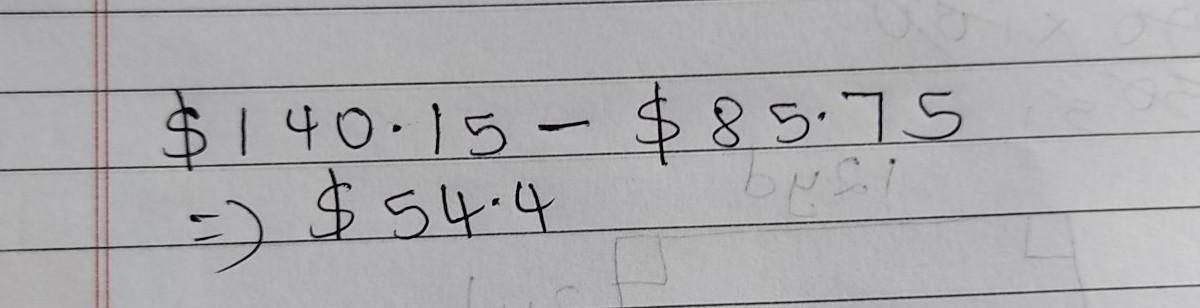 $140.15 - $85.75
=) $54.4